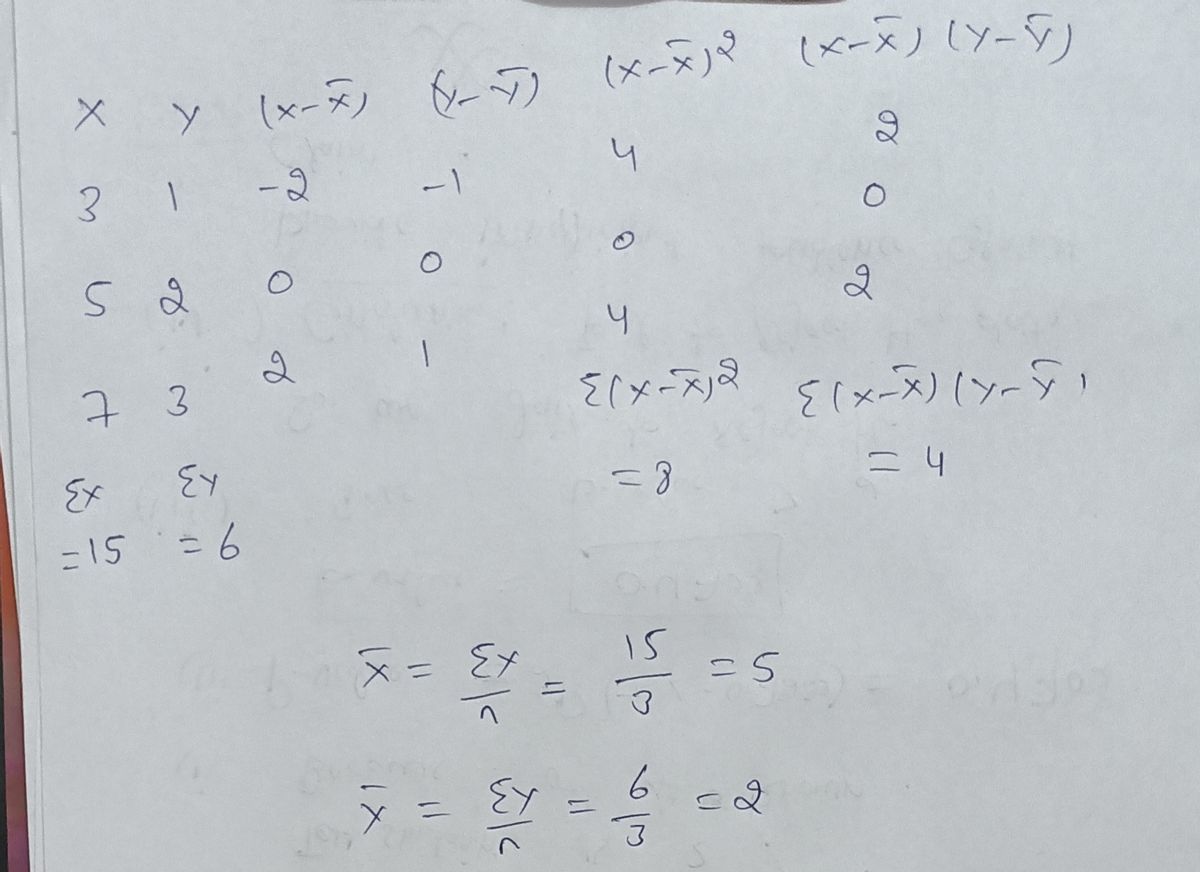 X Y (x-x̄) (y-ȳ) (x-x̄)2 (x-x̄) (y-ȳ)
3 1 -2 -1 4 2
5 2 0 0 0 0
7 3 2 1 4 2
Σx Σy Σ(x-x̄)2 Σ(x-x̄) (y-ȳ)
=15 =6 =8 =4
x̄ = Σx/n = 15/3 = 5
ȳ = Σy/n = 6/3 = 2